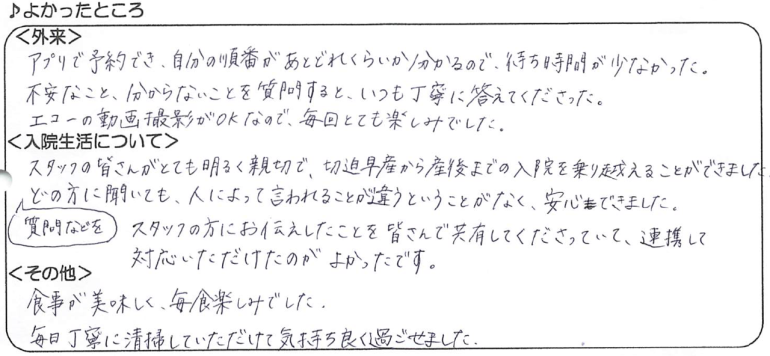 ♪よかったところ
<外来>
アプリで予約でき、自分の順番があとどれくらいか分かるので、待ち時間が少なかった。
不安なこと、分からないことを質問すると、いつも丁寧に答えてくださった。
エコーの動画撮影がOKなので、毎回とても楽しみでした。
<入院生活について>
スタッフの皆さんがとても明るく親切で、切迫早産から産後までの入院を乗り越えることができました
どの方に聞いても、人によって言われることが違うということがなく、安心できました。
質問などを
スタッフの方にお伝えしたことを皆さんで共有してくださっていて、連携して
対応いただけたのがよかったです。
<その他>
食事が美味しく、毎食楽しみでした.
毎日丁寧に清掃していただけて気持ち良く過ごせました.